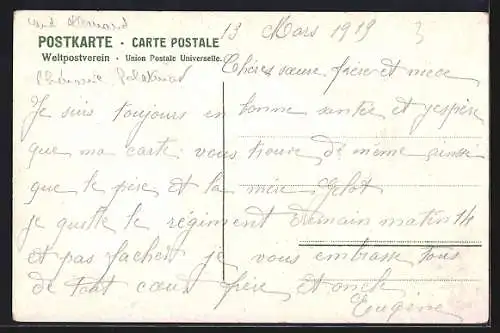 13 Mars 1919
POSTKARTE · CARTE POSTALE
Weltpostverein · Union Postale Universelle.
Chères soeur frère et niece
Je suis toujours en bonne santée et j'espère
que ma carte vous trouve de même ainsi
que le père et la mère
je quitte le régiment demain matin 14
et pas facher je vous embrasse tous
de tout coeur frère et oncle
Eugène